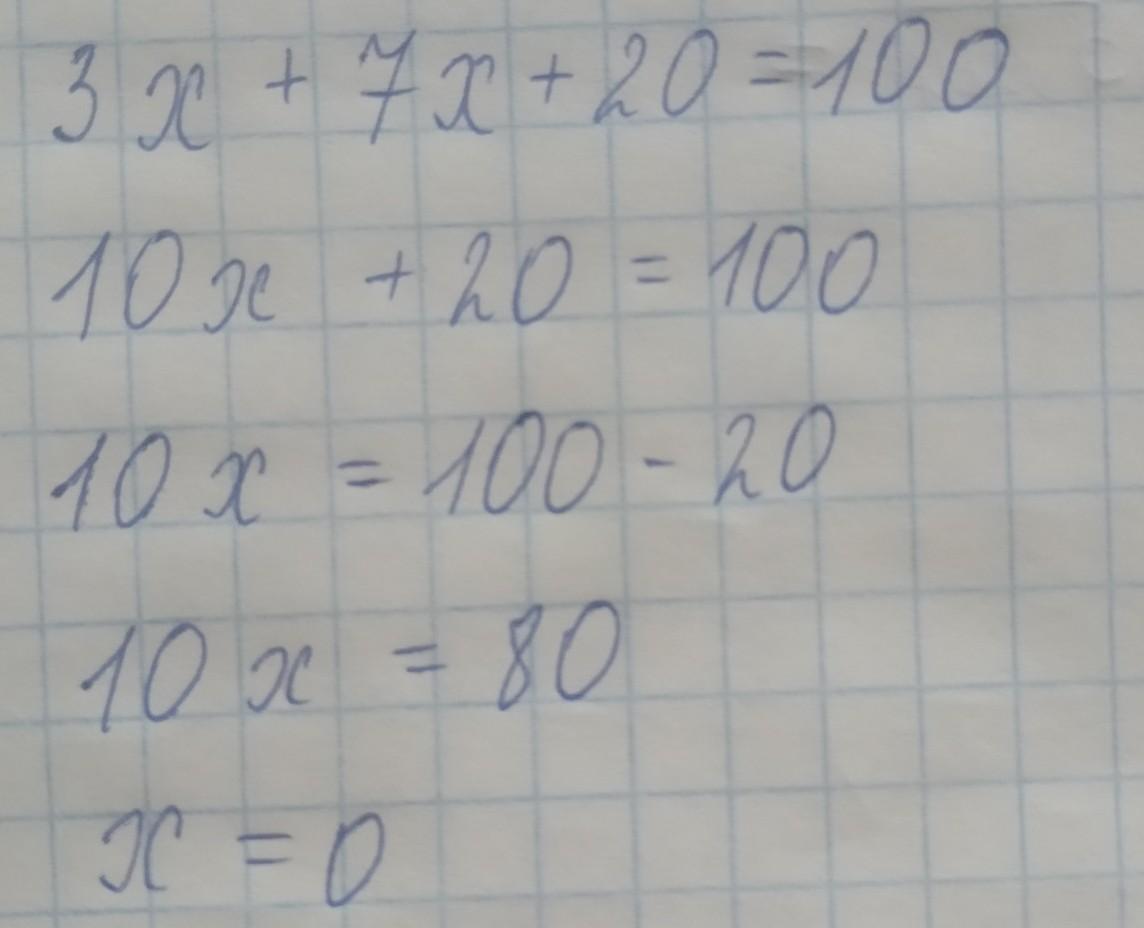 3x + 7x + 20 = 100
10x + 20 = 100
10x = 100 - 20
10x = 80
x = 0